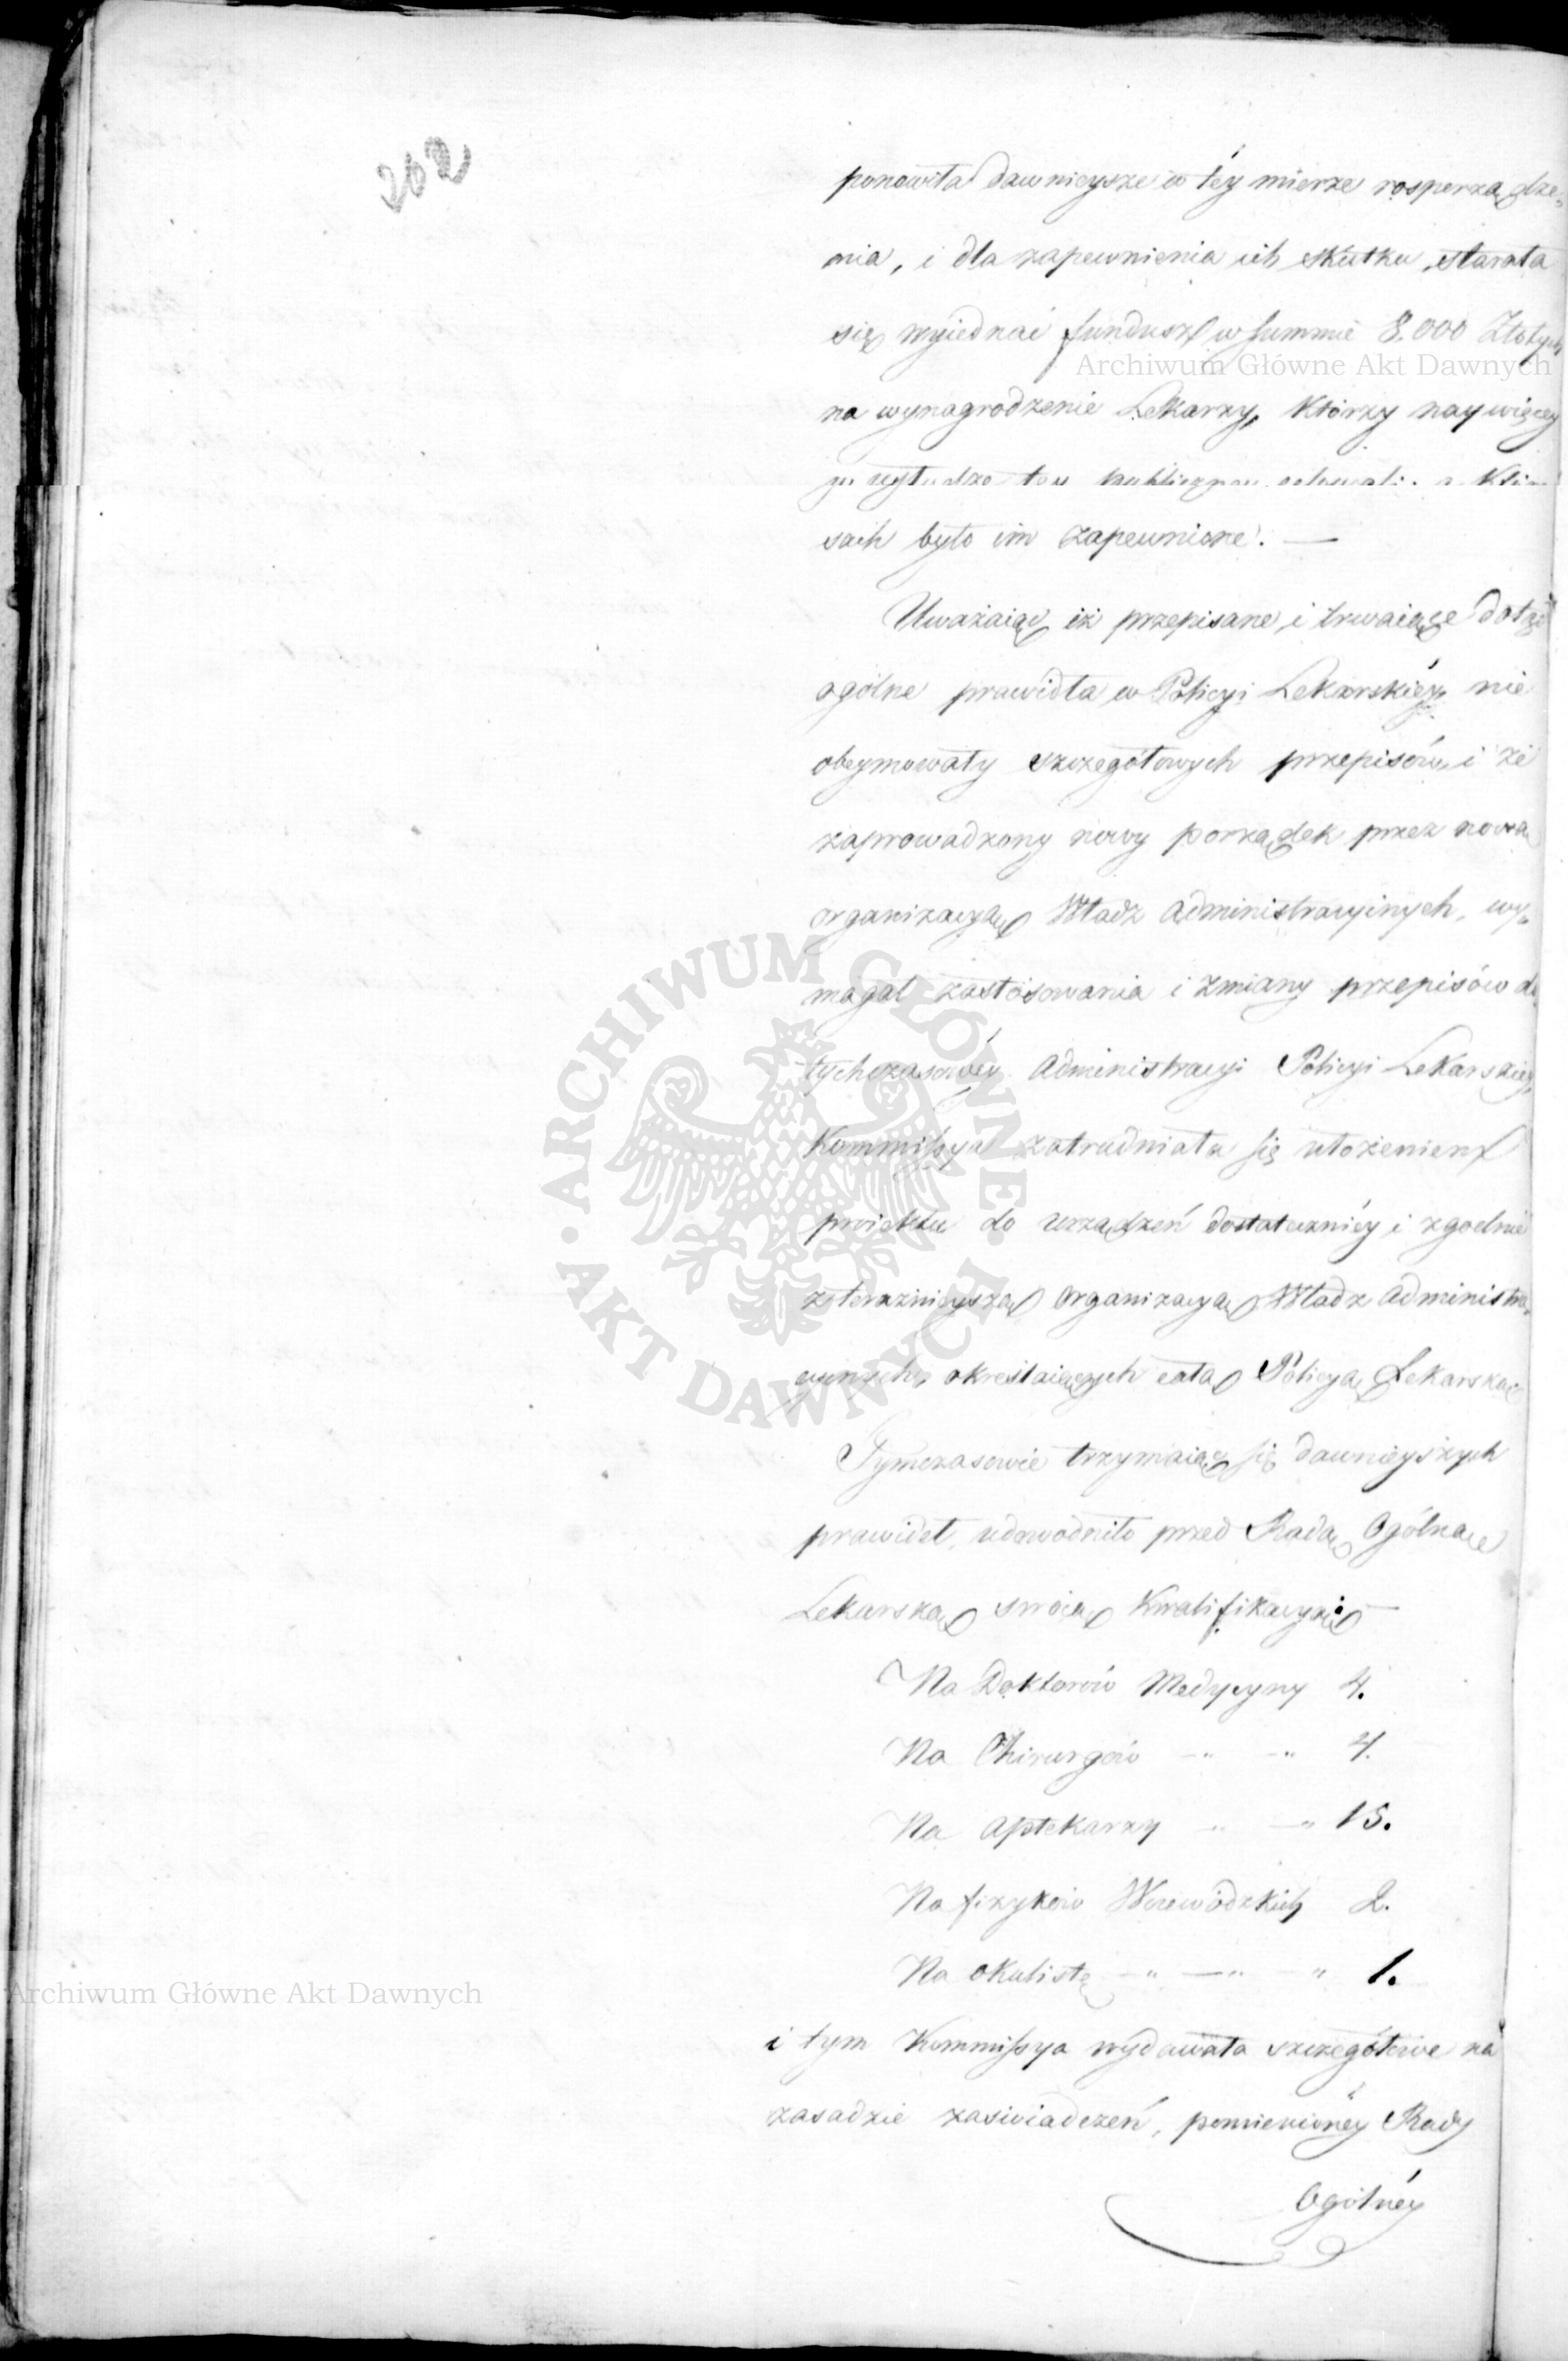 202
ponowiła dawnieysze w téy mierze rosporządze-
nia, i dla zapewnienia ich skutku, starała
się wyiednać fundusz w summie 8.000 Złotych
na wynagrodzenie Lekarzy, którzy naywięcéy
sach było im zapewnione. —
Uważaiąc iż przepisane i trwaiące dotąd
ogólne prawidła w Policyi Lekarskiéy nie
obeymowały szczegółowych przepisów, i że
zaprowadzony nowy porządek przez nową
organizacyą Władz Administracyinych, wy-
magał zastósowania i zmiany przepisów do
tychczasowéy Administracyi Policyi Lekarskiéy,
Kommissya zatrudniała się ułożeniem
proiektu do urządzeń dostateczniéy i zgodnie
z teraznieyszą organizacyą Władz Administra-
cyinych, określaiących całą Policyą Lekarską
Tymczasowie trzymaiąc się dawnieyszych
prawideł, udowodniło przed Radą Ogólną
Lekarską swoią Kwalifikacyią —
Na Doktorów Medycyny 4.
Na Chirurgów -„ -„ 4.
Na Aptekarzy -„ -„ 15.
Na fizyków Woiewódzkich 2.
Na okulistę -„ -„ -„ 1.
i tym Kommissya wydawała szczegółowe na
zasadzie zaswiadczeń, pomienionéy Rady
Ogólnéy
Archiwum Główne Akt Dawnych
Archiwum Główne Akt Dawnych
ARCHIWUM GŁÓWNE AKT DAWNYCH